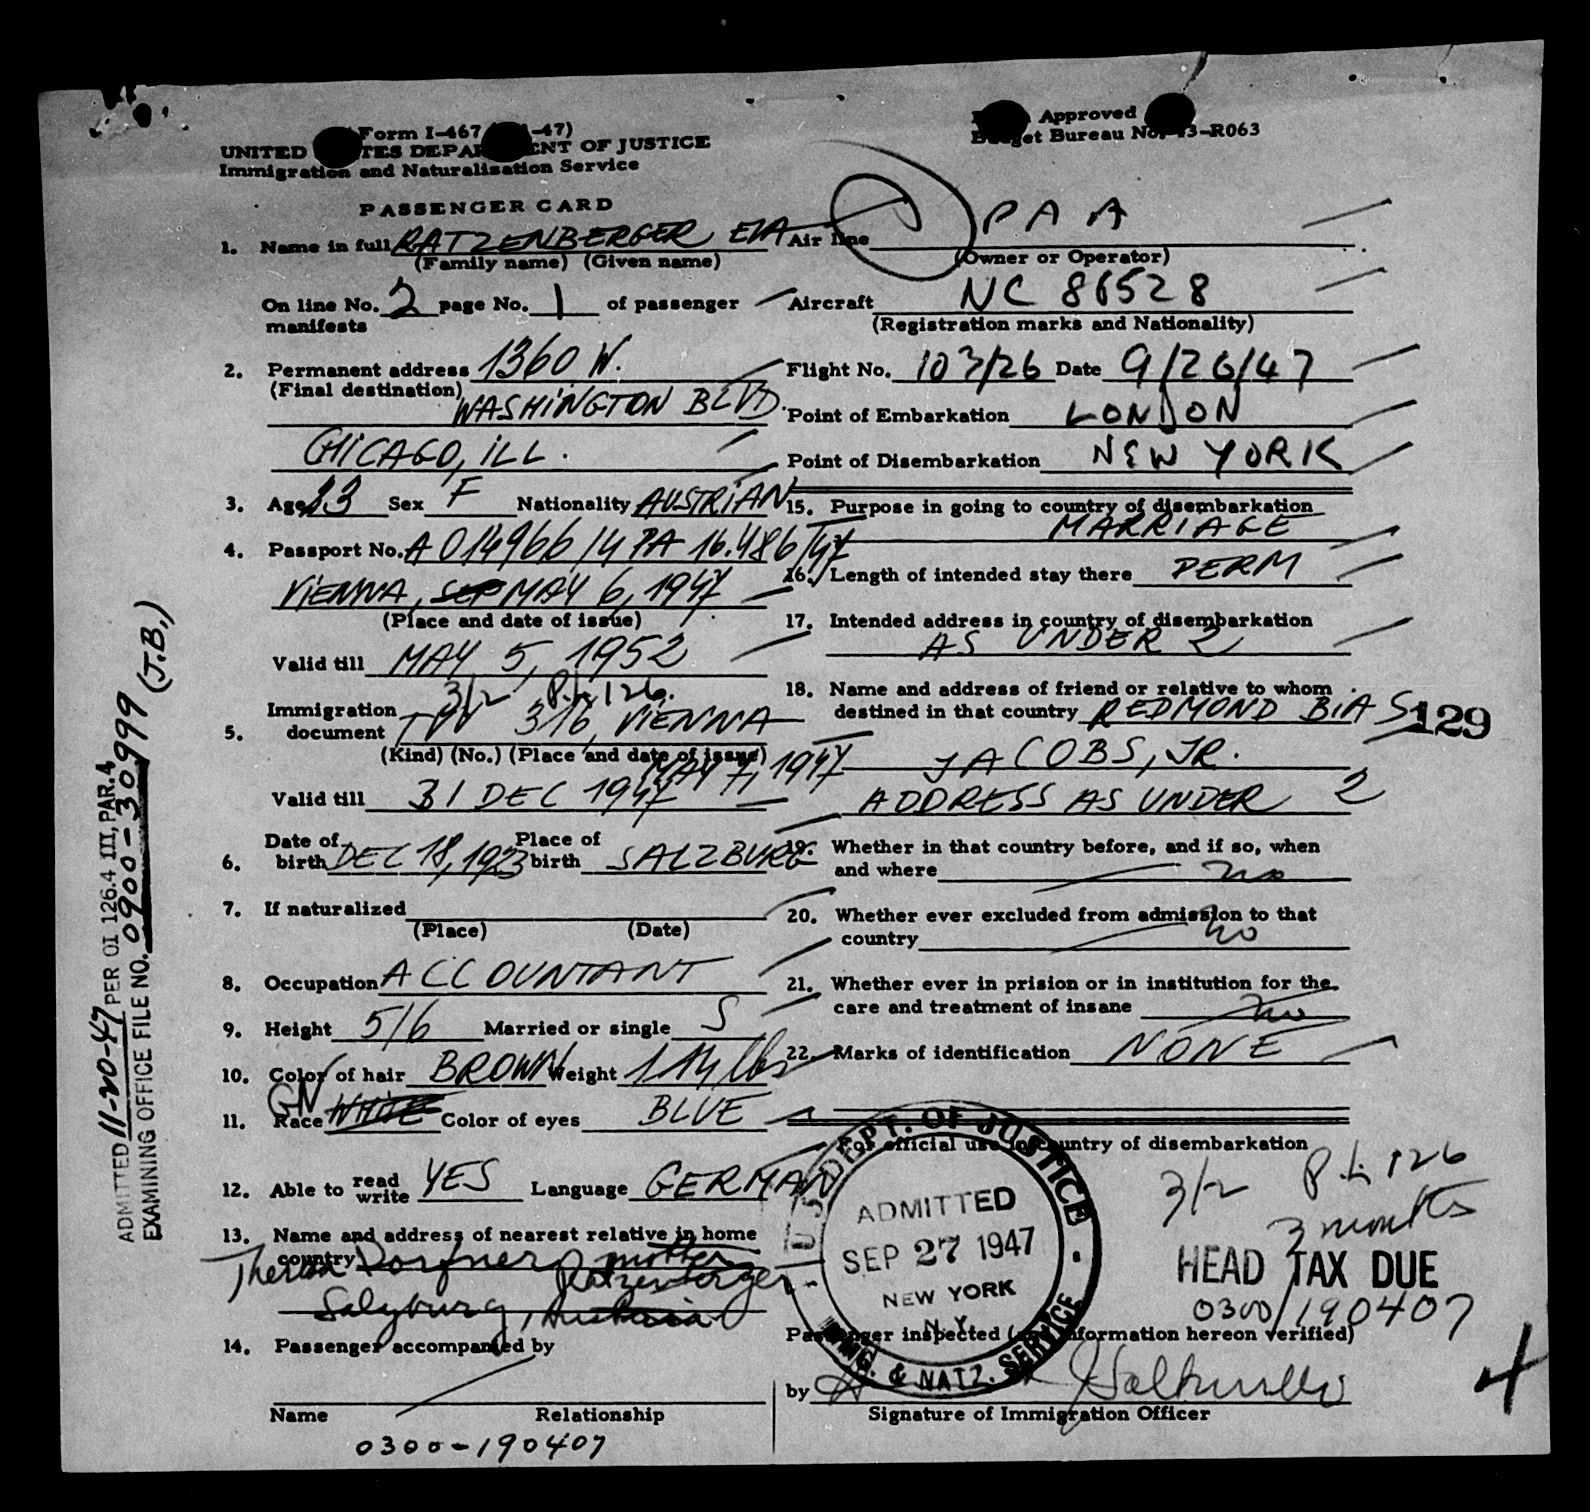 Form I-467 -47)
UNITED TES DEPA ENT OF JUSTICE
Immigration and Naturalisation Service
PASSENGER CARD
Approved
Budget Bureau No. 43-R063
1. Name in full RATZENBERGER EVA
(Family name) (Given name)
On line No. 2 page No. 1 of passenger
manifests
2. Permanent address 1360 W.
(Final destination)
WASHINGTON BLVD.
CHICAGO, ILL.
3. Age 23 Sex F Nationality AUSTRIAN
4. Passport No. A 014966/4 PA 16.486/47
VIENNA, SEP MAY 6, 1947
(Place and date of issue)
Valid till MAY 5, 1952
3/2 P.L. 126.
Immigration
5. document 316, VIENNA
(Kind) (No.) (Place and date of issue)
MAY 7, 1947
Valid till 31 DEC 1947
6. Date of birth DEC 18, 1923 Place of birth SALZBURG
7. If naturalized
(Place) (Date)
8. Occupation ACCOUNTANT
9. Height 5/6 Married or single S
10. Color of hair BROWN Weight 114 lbs
GN
11. Race WHITE Color of eyes BLUE
12. Able to read write YES Language GERMAN
13. Name and address of nearest relative in home
country Dorfner, mother
Theresa Ratzenberger
Salzburg, Austria
14. Passenger accompanied by
Name Relationship
0300-190407
Air line PAA
(Owner or Operator)
Aircraft NC 86528
(Registration marks and Nationality)
Flight No. 103/26 Date 9/26/47
Point of Embarkation LONDON
Point of Disembarkation NEW YORK
15. Purpose in going to country of disembarkation
MARRIAGE
16. Length of intended stay there PERM
17. Intended address in country of disembarkation
AS UNDER 2
18. Name and address of friend or relative to whom
destined in that country REDMOND BIAS
129
JACOBS, JR.
ADDRESS AS UNDER 2
19. Whether in that country before, and if so, when
and where no
20. Whether ever excluded from admission to that
country no
21. Whether ever in prision or in institution for the
care and treatment of insane no
22. Marks of identification NONE
For official use in country of disembarkation
3/2 P.L. 126
3 months
HEAD TAX DUE
0300/190407
U.S. DEPT. OF JUSTICE
ADMITTED
SEP 27 1947
NEW YORK
N.Y.
IMMG. & NATZ. SERVICE
Passenger inspected (and information hereon verified)
by
Signature of Immigration Officer
ADMITTED 11-20-47 PER OI 126.4 III, PAR.4
EXAMINING OFFICE FILE NO. 0900-30999 (J.B.)